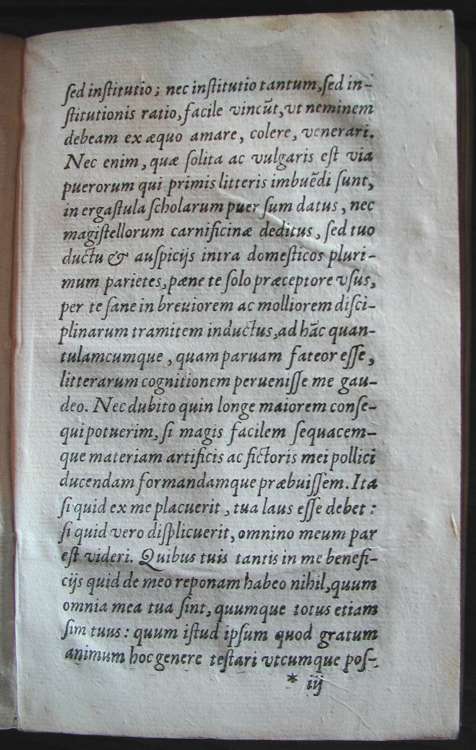 ſed inſtitutio; nec inſtitutio tantum, ſed in-
ſtitutionis ratio, facile vincũt, vt neminem
debeam ex æquo amare, colere, venerari.
Nec enim, quæ ſolita ac vulgaris eſt via
puerorum qui primis litteris imbuẽdi ſunt,
in ergaſtula ſcholarum puer ſum datus, nec
magiſtellorum carnificinæ deditus, ſed tuo
ductu & auſpicijs intra domeſticos pluri-
mum parietes, pæne te ſolo præceptore vſus,
per te ſane in breuiorem ac molliorem diſci-
plinarum tramitem inductus, ad hãc quan-
tulamcumque, quam paruam fateor eſſe,
litterarum cognitionem perueniſſe me gau-
deo. Nec dubito quin longe maiorem conſe-
qui potuerim, ſi magis facilem ſequacem-
que materiam artificis ac fictoris mei pollici
ducendam formandamque præbuiſſem. Ita
ſi quid ex me placuerit, tua laus eſſe debet:
ſi quid vero diſplicuerit, omnino meum par
eſt videri. Quibus tuis tantis in me benefi-
cijs quid de meo reponam habeo nihil, quum
omnia mea tua ſint, quumque totus etiam
ſim tuus: quum iſtud ipſum quod gratum
animum hoc genere teſtari vtcumque poſ-
* iij